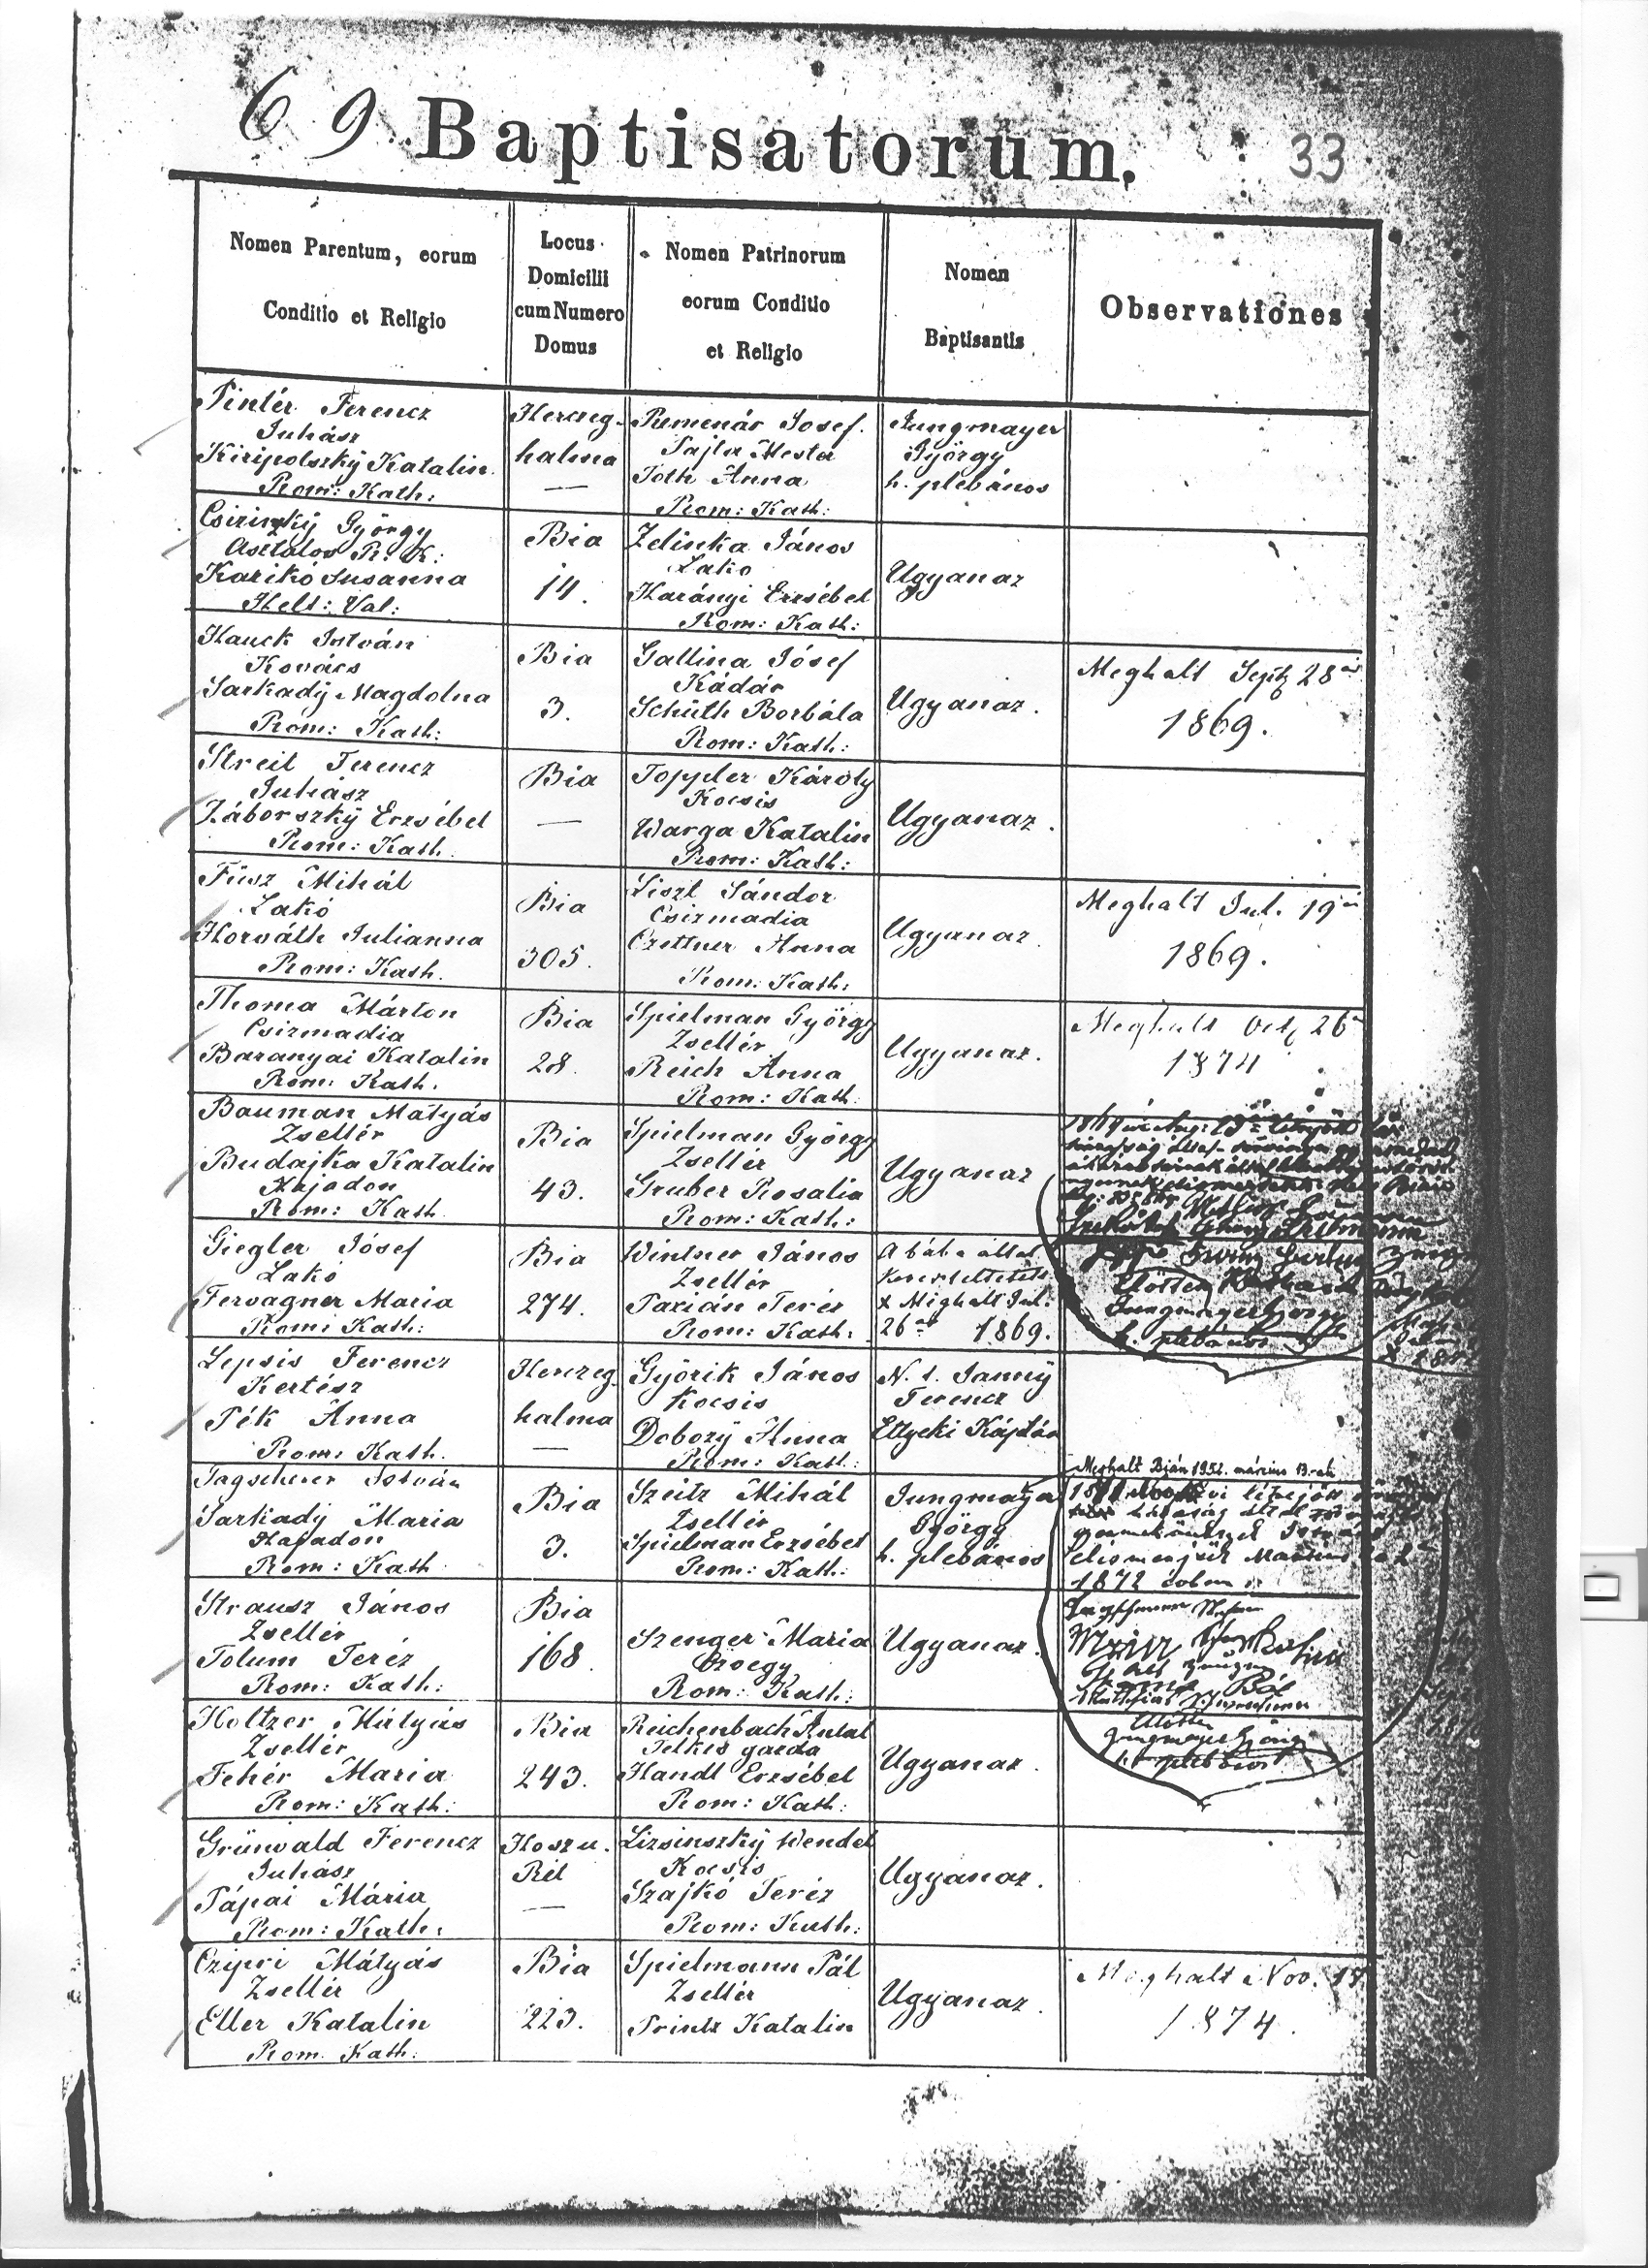 69 Baptisatorum. 33
Nomen Parentum, eorum
Conditio et Religio
Locus
Domicilii
cum Numero
Domus
Nomen Patrinorum
eorum Conditio
et Religio
Nomen
Baptisantis
Observationes
Pintér Ferencz
Juhász
Kiripolszky Katalin
Rom: Kath:
Herczeg-
halma
—
Remenár Josef.
Tóth Anna
Rom: Kath:
Jungmayer
György
h. plébános
Csizinszky György
Asztalos R. K:
Karikó Susanna
Helv: Val:
Bia
14.
Zelinka János
Lakó
Harányi Erzsébet
Rom: Kath:
Ugyanaz
Hauck István
Kovács
Sarkady Magdolna
Rom: Kath:
Bia
3.
Gallina Jósef
Kádár
Schüth Borbála
Rom: Kath:
Ugyanaz.
Meghalt Sept 28án
1869.
Streit Ferencz
Juhász
Záborszky Erzsébet
Rom: Kath.
Bia
—
Toppler Károly
Kocsis
Warga Katalin
Rom: Kath:
Ugyanaz.
Füsz Mihál
Lakó
Horváth Julianna
Rom: Kath.
Bia
305.
Liszt Sándor
Csizmadia
Czettner Anna
Rom: Kath:
Ugyanaz.
Meghalt Jul. 19én
1869.
Thoma Márton
Csizmadia
Baranyai Katalin
Rom: Kath.
Bia
28.
Spielman György
Zsellér
Reich Anna
Rom: Kath.
Ugyanaz.
Meghalt Oct 26
1874
Bauman Mátyás
Zsellér
Budajka Katalin
Hajadon
Rom: Kath.
Bia
43.
Spielman György
Zsellér
Gruber Rosalia
Rom: Kath:
Ugyanaz
Giegler Jósef
Lakó
Fervagner Maria
Rom: Kath:
Bia
274.
Wintner János
Zsellér
Paxián Teréz
Rom: Kath:
A bába által
kereszteltetett
x Meghalt Jul.
26án 1869.
Előttem
Jungmayer György
h. plébános
Lepsis Ferencz
Kertész
Pék Anna
Rom: Kath.
Herczeg-
halma
—
Győrik János
Kocsis
Dobozy Anna
Rom: Kath:
Ferencz
Etyeki Káplán
Tagscherer István
Sarkady Maria
Hajadon
Rom: Kath
Bia
3.
Szeitz Mihál
Zsellér
Spielman Erzsébet
Rom: Kath:
Jungmayer
György
h. plébános
Meghalt Bián 1952. március 13-án
1872
Strausz János
Zsellér
Tolum Teréz
Rom: Kath:
Bia
168.
Szenger Maria
Özvegy
Rom: Kath:
Ugyanaz.
Holtzer Mátyás
Zsellér
Fehér Maria
Rom: Kath:
Bia
243.
Reichenbach Antal
Telkis gazda
Handl Erzsébet
Rom: Kath:
Ugyanaz.
Előttem
Jungmayer György
h. plébános
Grünvald Ferencz
Juhász
Pápai Mária
Rom: Kath:
Hoszu.
Rét
—
Lizsinszky Wendel
Kocsis
Szajkó Teréz
Rom: Kath:
Ugyanaz.
Czipri Mátyás
Zsellér
Eller Katalin
Rom. Kath:
Bia
223.
Spielmann Pál
Zsellér
Printz Katalin
Ugyanaz.
Meghalt Nov. 18
1874.